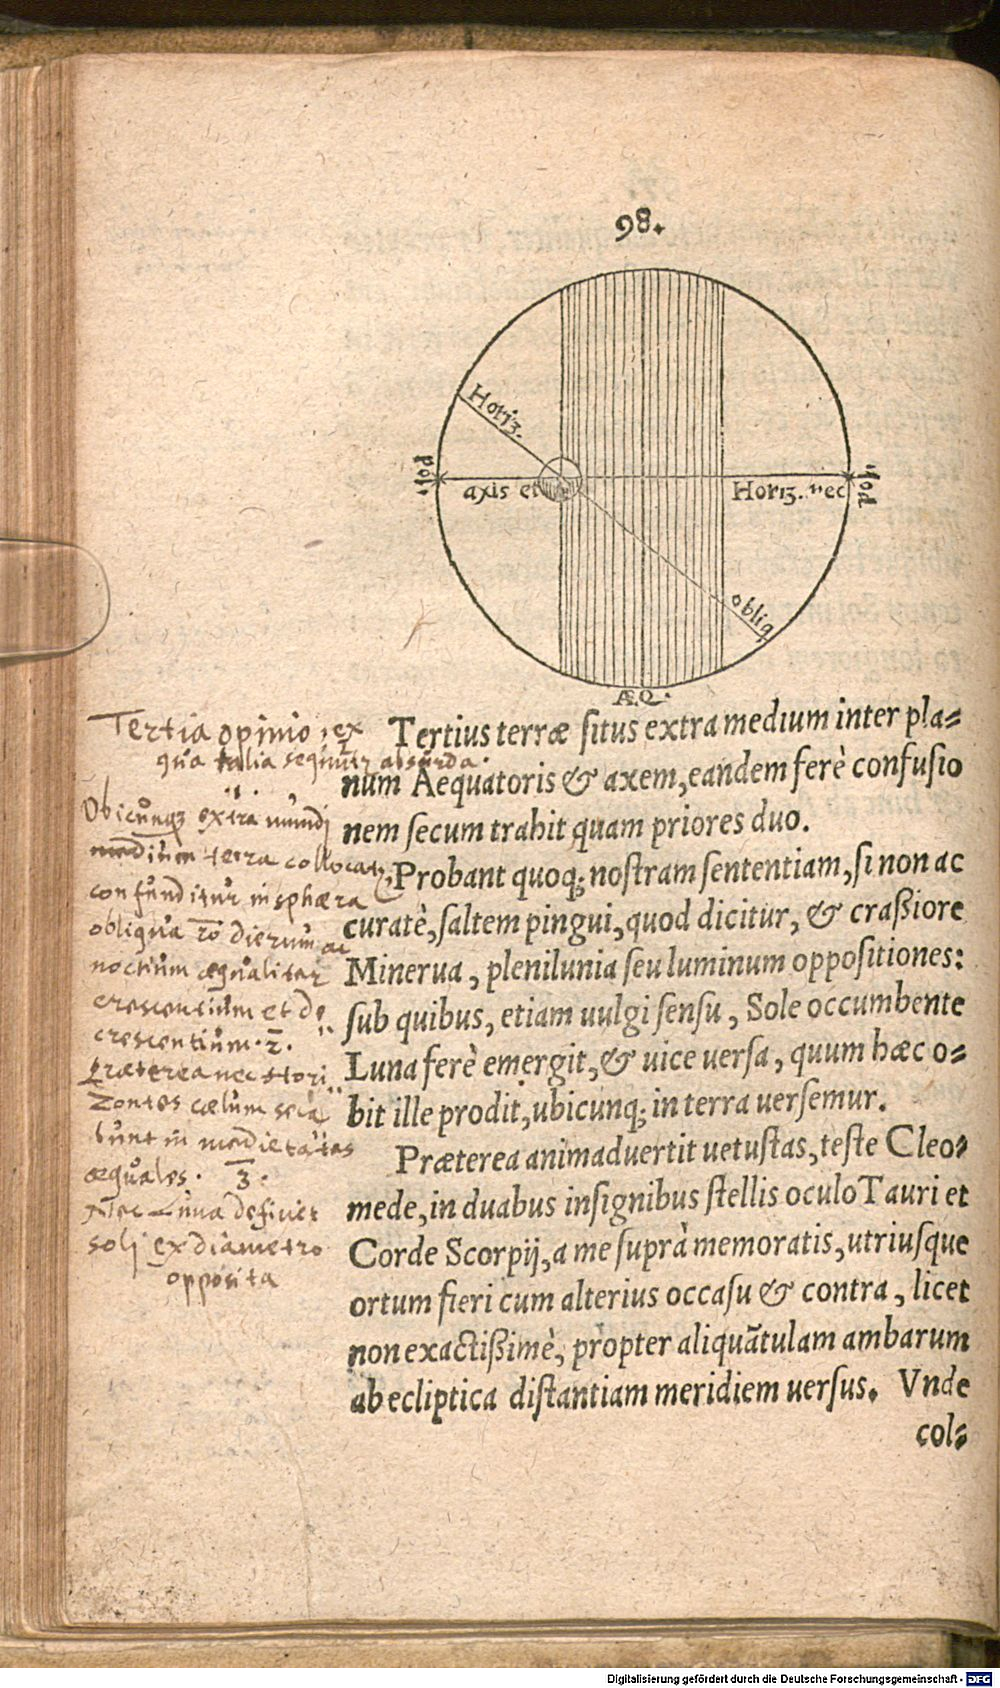 98.
Horiz.
pol9
axis et
Horiz. rec
pol9
obliq
ÆQ.
Tertius terræ situs extra medium inter pla=
num Aequatoris & axem, eandem ferè confusio
nem secum trahit quam priores duo.
Probant quoq; nostram sententiam, si non ac
curatè, saltem pingui, quod dicitur, & craßiore
Minerua, plenilunia seu luminum oppositiones:
sub quibus, etiam uulgi sensu, Sole occumbente
Luna ferè emergit, & uice uersa, quum hæc o=
bit ille prodit, ubicunq; in terra uersemur.
Præterea animaduertit uetustas, teste Cleo=
mede, in duabus insignibus stellis oculo Tauri et
Corde Scorpij, a me suprà memoratis, utriusque
ortum fieri cum alterius occasu & contra, licet
non exactißimè, propter aliquãtulam ambarum
ab ecliptica distantiam meridiem uersus. Vnde
col=
Tertia opinio, ex
qua talia sequntr absurda.
.1.
Obicunq; extra mundi
medium terra collocatr,
confunditur in sphæra
obliqua rõ dierum ac
noctium æqualiter
crescentium et de
crescentium. 2.
Præterea nec Hori
zontes cælum seca
bunt in medietates
æquales. 3.
Nec Luna deficiet
soli ex diametro
opposita
Digitalisierung gefördert durch die Deutsche Forschungsgemeinschaft - DFG